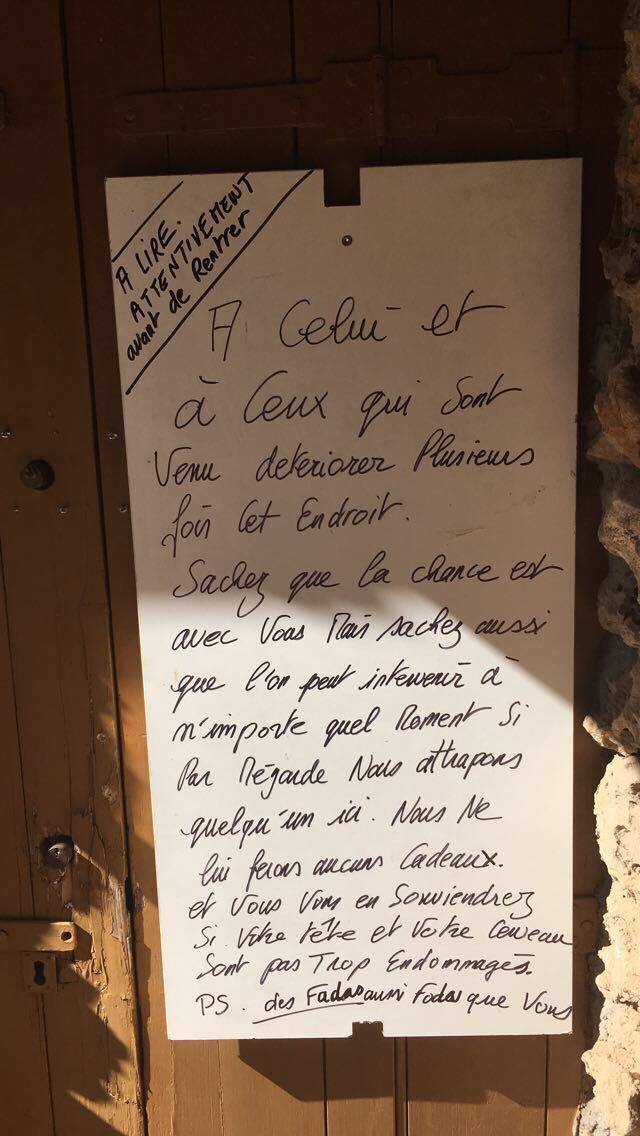 A LIRE.
ATTENTIVEMENT
avant de Rentrer
A Celui et
à Ceux qui sont
Venu deteriorer Plusieurs
fois Cet Endroit.
Sachez que la chance est
avec Vous Mais sachez aussi
que l'on peut intervenir à
n'importe quel Moment Si
Par Mégarde Nous attrapons
quelqu'un ici. Nous Ne
lui ferons aucuns Cadeaux.
et Vous Vous en Souviendrez
Si Votre tête et Votre Cerveau
Sont pas Trop Endommagés.
PS. des Fadas aussi Fadas que Vous